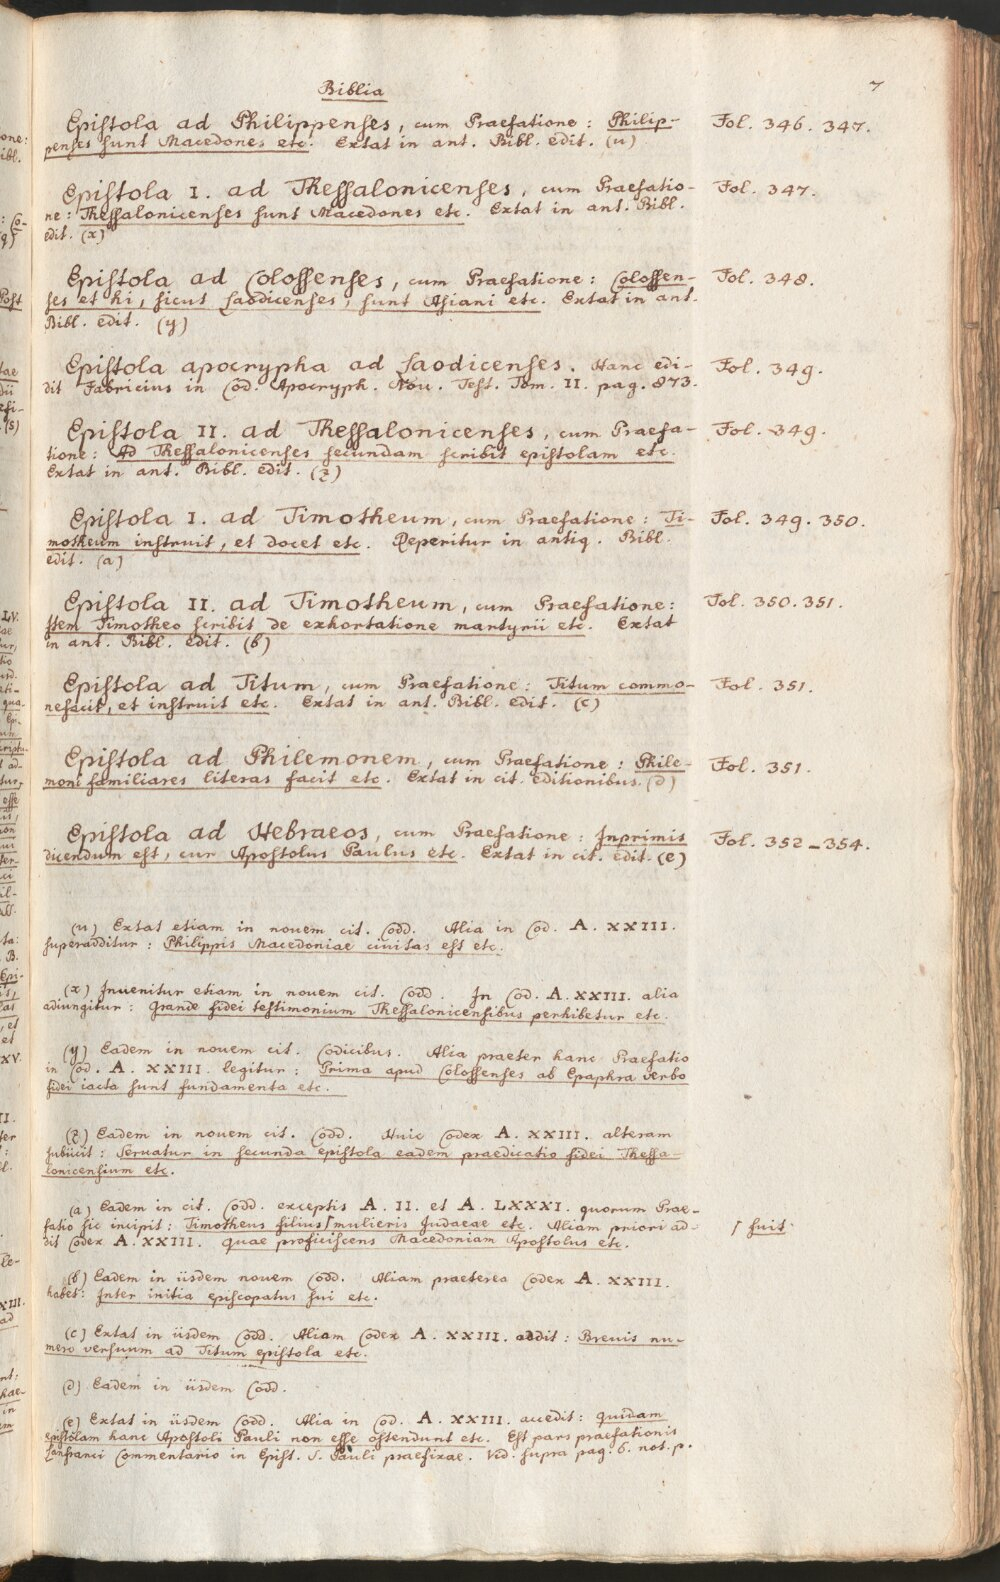 Biblia
7
Epistola ad Philippenses, cum Praefatione: Philip- Fol. 346. 347.
penses sunt Macedones etc. Extat in ant. Bibl. edit. (u)
Epistola I. ad Thessalonicenses, cum Praefatio- Fol. 347.
ne: Thessalonicenses sunt Macedones etc. Extat in ant. Bibl.
edit. (x)
Epistola ad Colossenses, cum Praefatione: Colossen- Fol. 348.
ses et hi, sicut Laodicenses, sunt Asiani etc. Extat in ant.
Bibl. edit. (y)
Epistola apocrypha ad Laodicenses. Hanc edi- Fol. 349.
dit Fabricius in Cod. Apocryph. Nov. Test. Tom. II. pag. 873.
Epistola II. ad Thessalonicenses, cum Praefa- Fol. 349.
tione: Ad Thessalonicenses secundam scribit epistolam etc.
Extat in ant. Bibl. edit. (z)
Epistola I. ad Timotheum, cum Praefatione: Ti- Fol. 349. 350.
motheum instruit, et docet etc. Reperitur in antiq. Bibl.
edit. (a)
Epistola II. ad Timotheum, cum Praefatione: Fol. 350. 351.
Item Timotheo scribit de exhortatione martyrii etc. Extat
in ant. Bibl. edit. (b)
Epistola ad Titum, cum Praefatione: Titum commo- Fol. 351.
nefacit, et instruit etc. Extat in ant. Bibl. edit. (c)
Epistola ad Philemonem, cum Praefatione: Phile- Fol. 351.
moni familiares literas facit etc. Extat in cit. editionibus. (d)
Epistola ad Hebraeos, cum Praefatione: Inprimis Fol. 352-354.
dicendum est, cur Apostolus Paulus etc. Extat in cit. edit. (e)
(u) Extat etiam in novem cit. Codd. Alia in Cod. A. XXIII.
superadditur: Philippis Macedoniae civitas est etc.
(x) Invenitur etiam in novem cit. Codd. In Cod. A. XXIII. alia
adiungitur: Grande fidei testimonium Thessalonicensibus perhibetur etc.
(y) Eadem in novem cit. Codicibus. Alia praeter hanc Praefatio
in Cod. A. XXIII. legitur: Prima apud Colossenses ab Epaphra verbo
fidei iacta sunt fundamenta etc.
(z) Eadem in novem cit. Codd. Huic Codex A. XXIII. alteram
subiicit: Servatur in secunda epistola eadem praedicatio fidei Thessa-
lonicensium etc.
(a) Eadem in cit. Codd. exceptis A. II. et A. LXXXI. quorum Prae-
fatio sic incipit: Timotheus filius ſ mulieris Judaeae etc. Aliam priori ad- ſ fuit
dit Codex A. XXIII. quae proficiscens Macedoniam Apostolus etc.
(b) Eadem in iisdem novem Codd. Aliam praeterea Codex A. XXIII.
habet: Inter initia episcopatus sui etc.
(c) Extat in iisdem Codd. Aliam Codex A. XXIII. addit: Brevis nu-
mero versuum ad Titum epistola etc.
(d) Eadem in iisdem Codd.
(e) Extat in iisdem Codd. Alia in Cod. A. XXIII. accedit: Quidam
epistolam hanc Apostoli Pauli non esse ostendunt etc. Est pars praefationis
Lanfranci Commentario in Epist. S. Pauli praefixae. Vid. supra pag. 6. not. p.